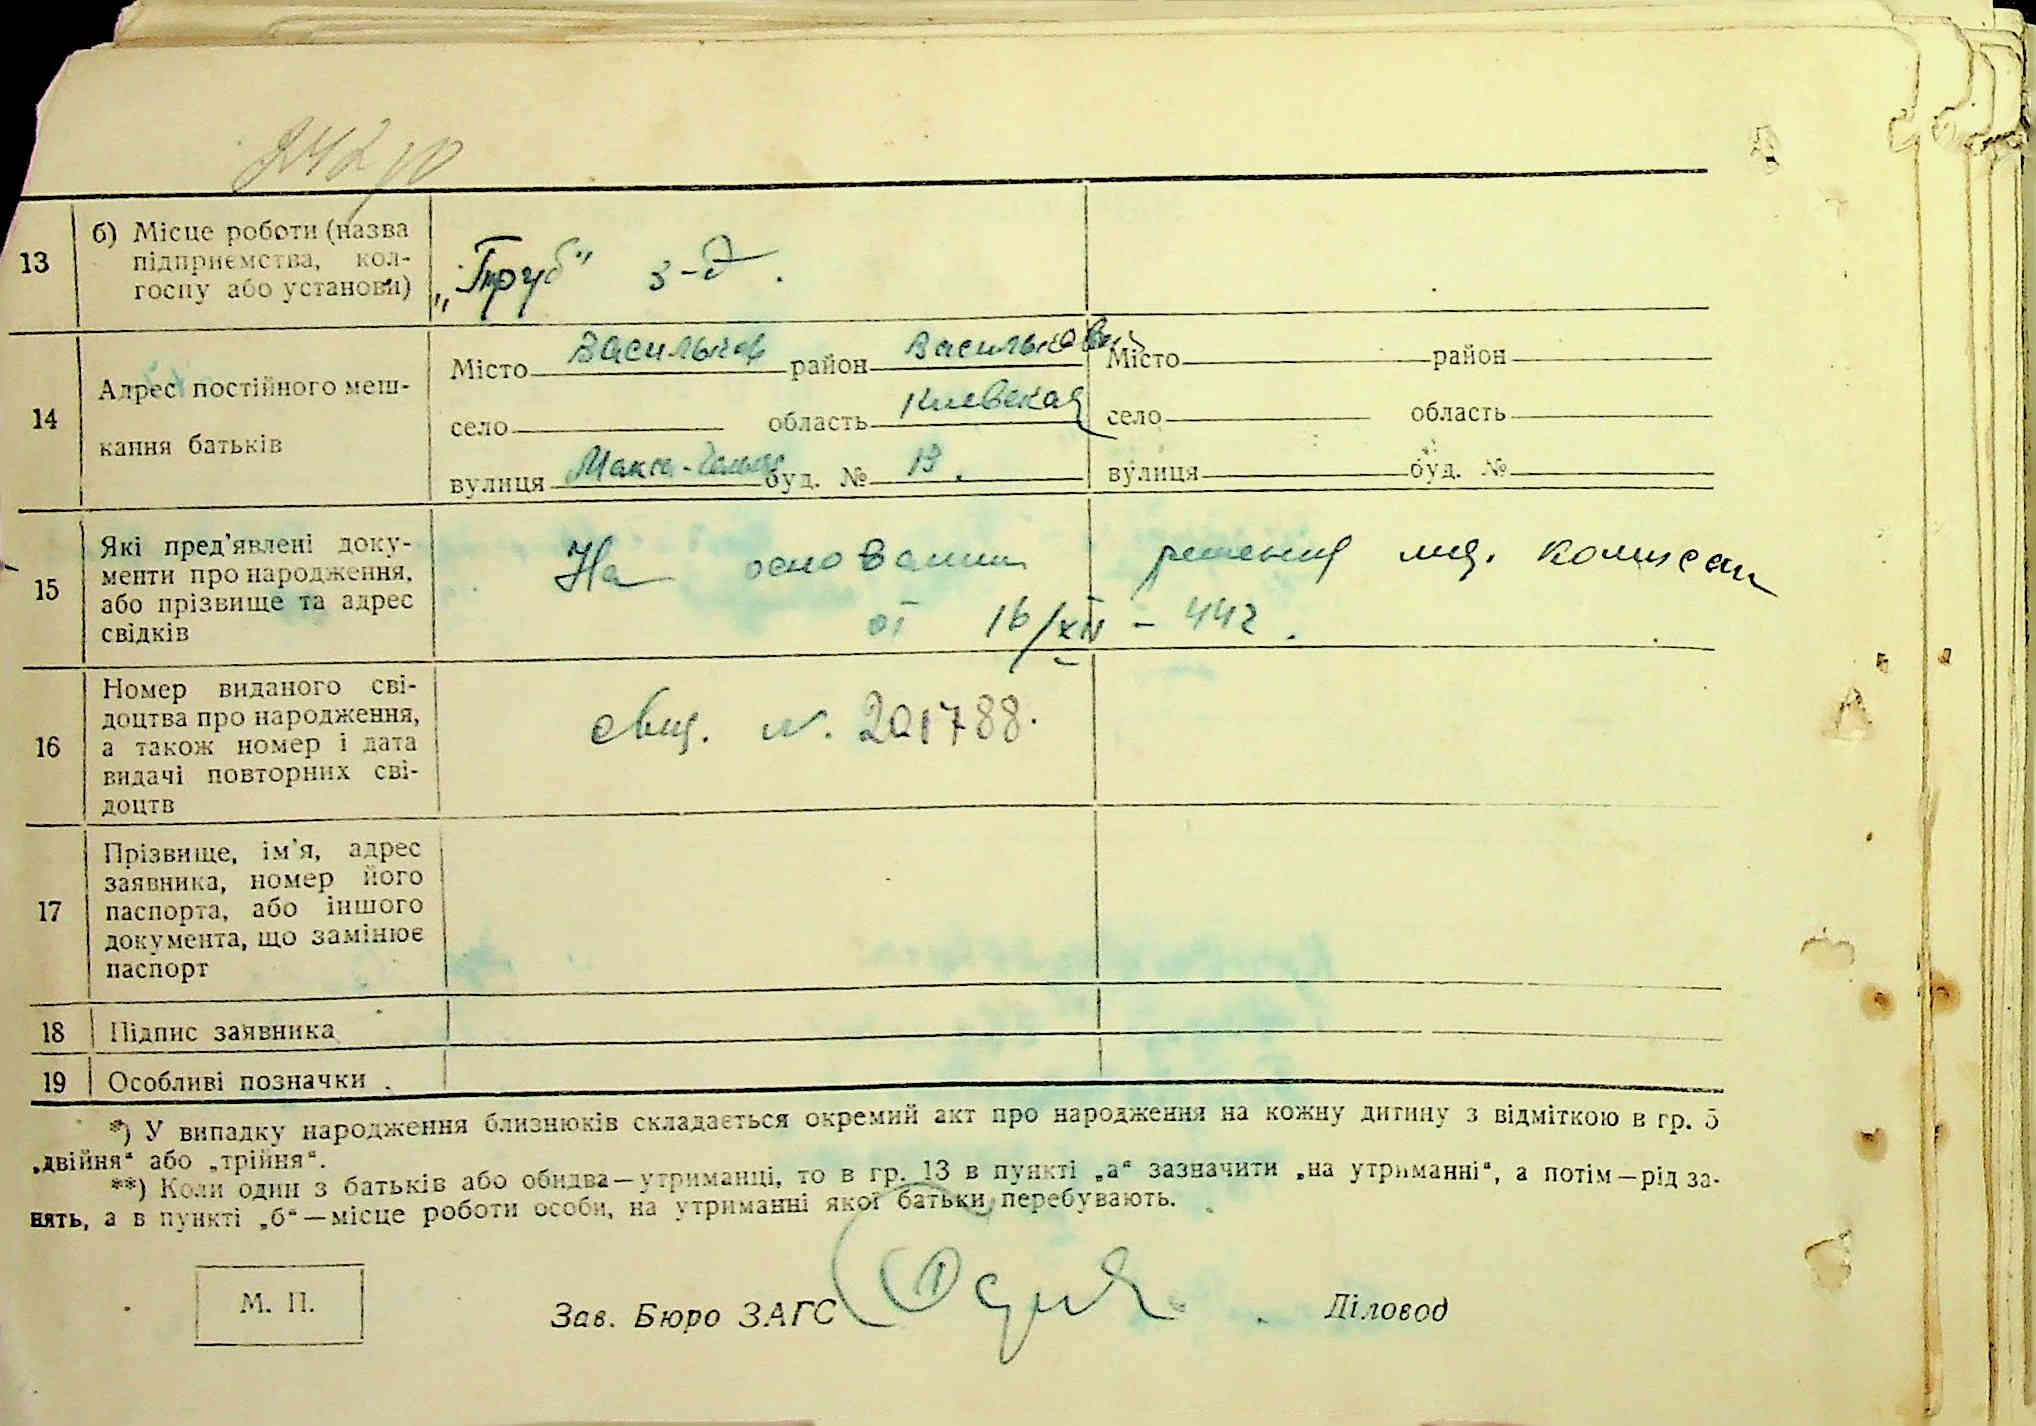 13
б) Місце роботи (назва
підприємства, кол-
госпу або установи)
„Труб“ з-д.
14
Адрес постійного меш-
кання батьків
Місто Васильков район Васильковск
село область Киевская
вулиця буд. № 13.
Місто район
село область
вулиця буд. №
15
Які пред'явлені доку-
менти про народження,
або прізвище та адрес
свідків
На основании решения мед. комиссии
от 16/XII – 44г.
16
Номер виданого сві-
доцтва про народження,
а також номер і дата
видачі повторних сві-
доцтв
свид. N. 201788.
17
Прізвище, ім'я, адрес
заявника, номер його
паспорта, або іншого
документа, що замінює
паспорт
18 Підпис заявника
19 Особливі позначки.
*) У випадку народження близнюків складається окремий акт про народження на кожну дитину з відміткою в гр. 5
„двійня“ або „трійня“.
**) Коли один з батьків або обидва—утриманці, то в гр. 13 в пункті „а“ зазначити „на утриманні“, а потім—рід за-
нять, а в пункті „б“—місце роботи особи, на утриманні якої батьки перебувають.
М. П.
Зав. Бюро ЗАГС
Діловод